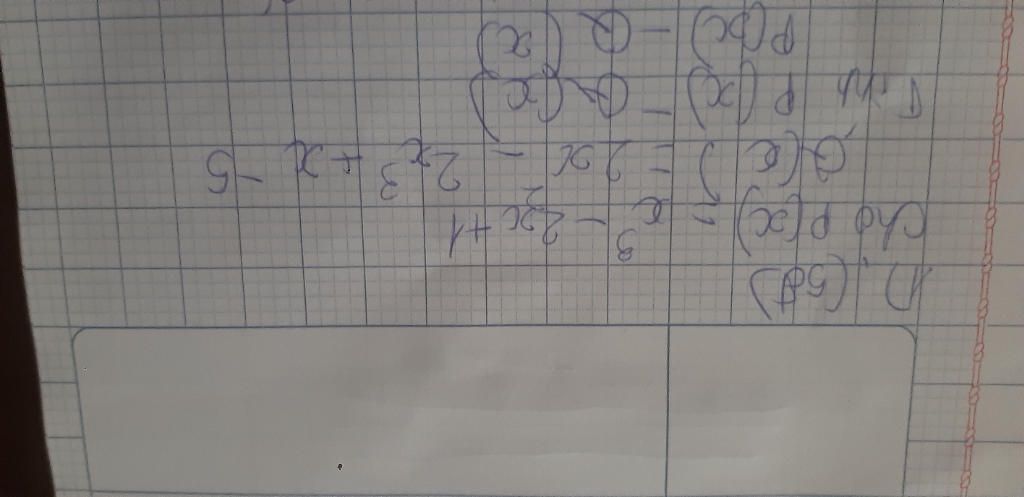 1) (5đ)
Cho P(x) = x³ - 2x + 1
Q(x) = 2x² - 2x³ + x - 5
Tính P(x) - Q(x)
P(x) - Q(x)